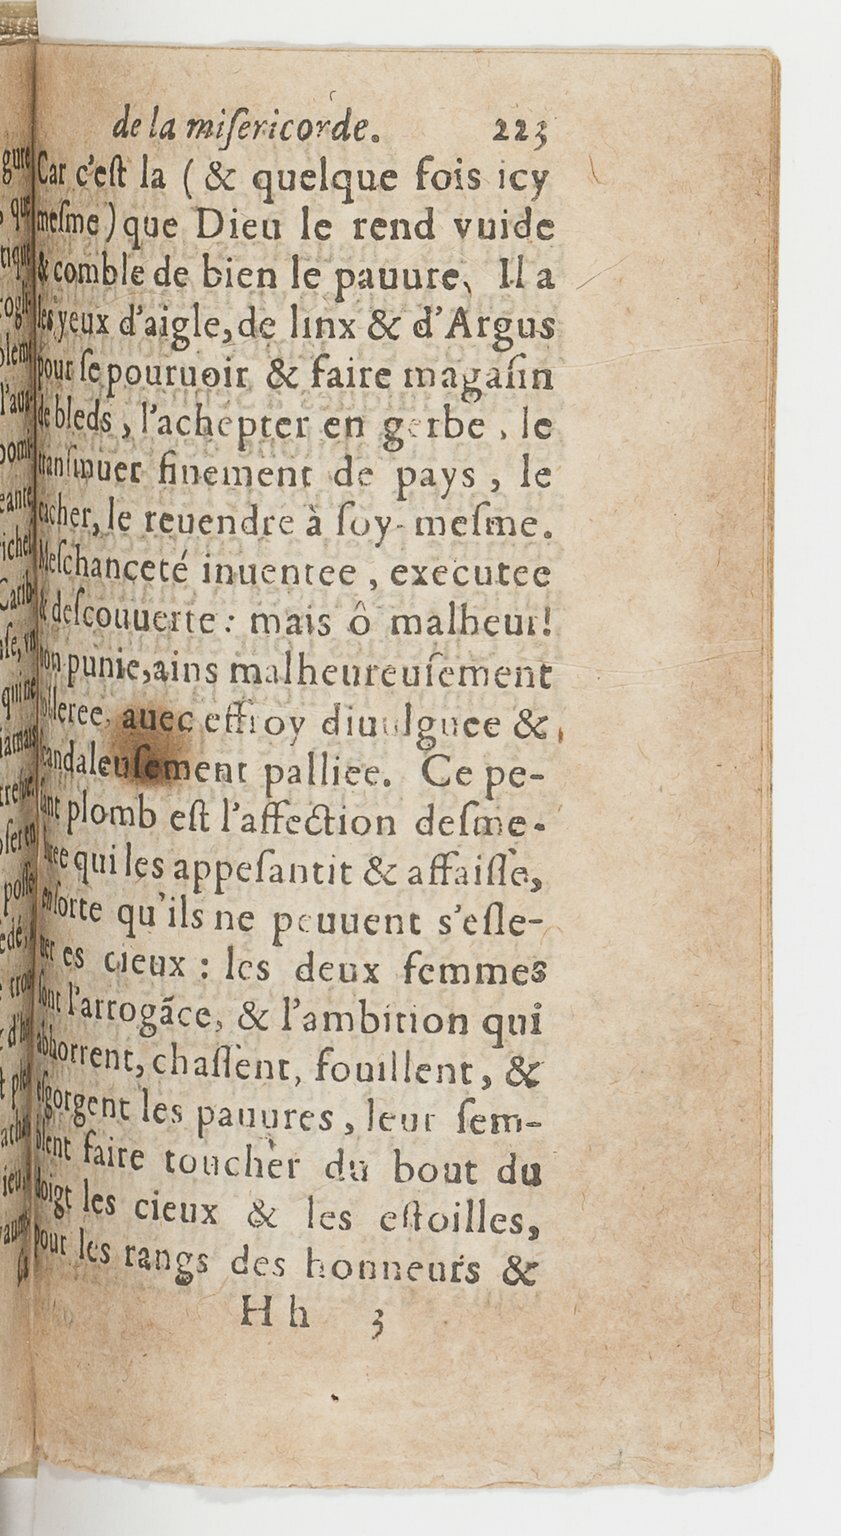 de la miſericorde. 223
Car c'eſt la ( & quelque fois icy
meſme) que Dieu le rend vuide
& comble de bien le pauure, Il a
les yeux d'aigle, de linx & d'Argus
pour ſe pouruoir & faire magaſin
de bleds, l'achepter en gerbe, le
finement de pays, le
cacher, le reuendre à ſoy-meſme.
Meſchanceté inuentee, executee
& deſcouuerte: mais ô malheur!
non punie, ains malheureuſement
auec effroy diuulguee &
ſcandaleuſement palliee. Ce pe-
ſant plomb eſt l'affection deſme-
qui les appeſantit & affaiſſe,
ſorte qu'ils ne peuuent s'eſle-
es cieux: les deux femmes
ſont l'arrogãce, & l'ambition qui
abhorrent, chaſſent, fouillent, &
eſgorgent les pauures, leur ſem-
blent faire toucher du bout du
doigt les cieux & les eſtoilles,
pour les rangs des honneurs &
Hh 3